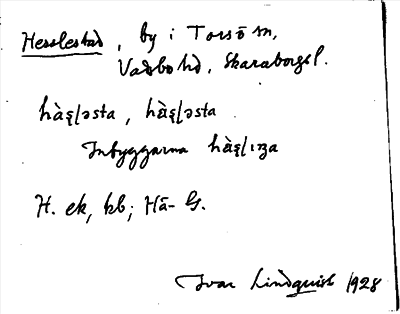 Hesslestad, by i Torsö sn,
Vadsbo hd, Skaraborgs l.
hàʂḷəsta, hàʂḷəsta
Inbyggarna hàʂḷıŋa
H. ek, kb; Hā- G.
Ivar Lindquist 1928